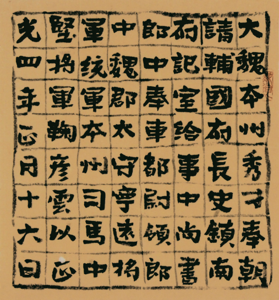 大魏本州秀才奉朝
請輔國府長史領南
府記室給事中尚書
郎中奉車都尉領郎
中魏郡太守寧遠將
軍統軍本州司馬中
堅將軍鞠彦雲以正
光四年正月十六日